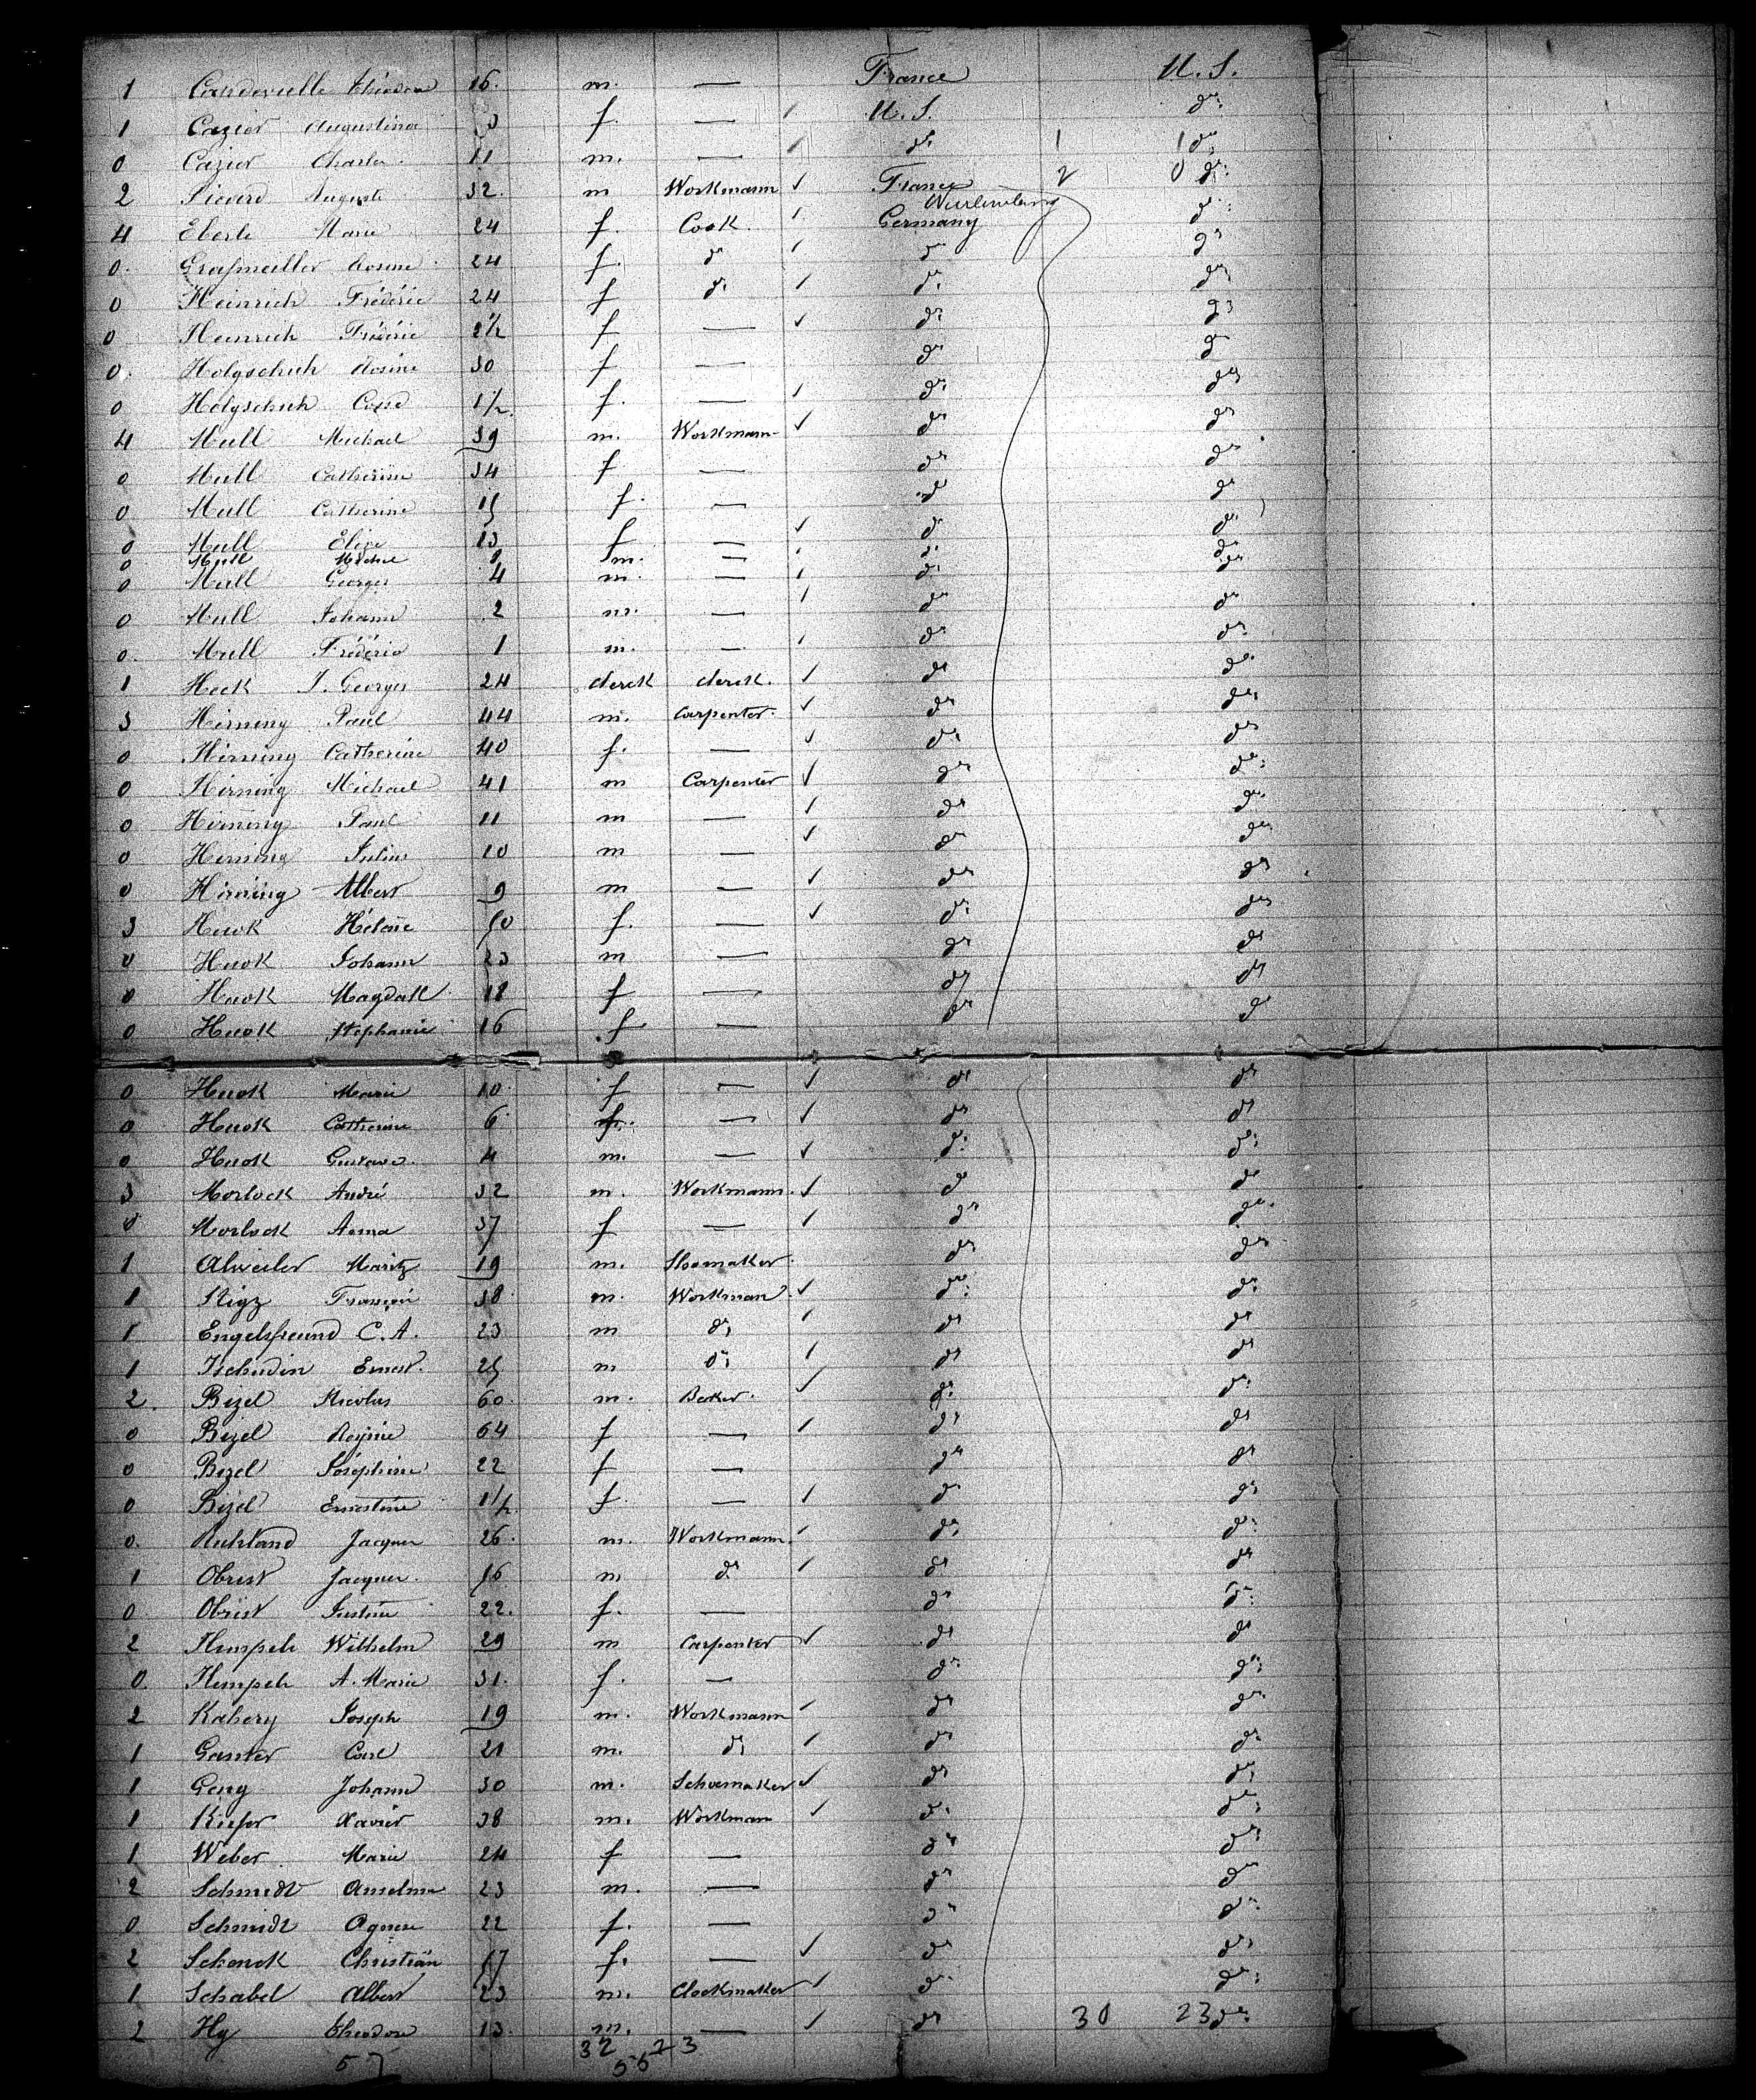 1 Canderielle Théodore 16. m. — France U. S.
1 Cazier Augustina f. — U. S. do
0 Cazier Charles 11 m. — do 1 1 do
2 Sicard Auguste 32. m Workmann ✓ France 2 0 do
Wurtemberg
4 Eberle Marie 24 f. Cook. Germany do
0. Grafmüller Rosine 24 f. do do do
0 Heinrich Frédéric 24 f do ✓ do do
0 Heinrich Frédéric 2 1/2 f — ✓ do do
0. Holzschuh Rosine 30 f — do do
0 Holzschuh 1/2. f. — ✓ do do
4 Mull Michael 39 m. Workmann ✓ do do
0 Mull Catherine 34 f — do do
0 Mull Catherine 15 f. — do do
0 Mull Elise 13 f — ✓ do do
0 Mull Michel m. — do do
0 Mull Georges 4 m. — do do
0 Mull Johann 2 m. — do do
0. Mull Frédéric 1 m. — do do
1 Heck J. Georges 24 clerck clerck. ✓ do do
3 Hirning Paul 44 m. Carpenter. ✓ do do
0 Hirning Catherine 40 f. — ✓ do do
0 Hirning Michael 41 m Carpenter ✓ do do
0 Hirning Paul 11 m — ✓ do do
0 Hirning Julius 10 m — ✓ do do
0 Hirning Albert 9 m — ✓ do do
3 Huok Hélène 50 f. — ✓ do do
0 Huok Johann 23 m — do do
0 Huok Magdall 18 f — do do
0 Huok Stephanie 16 f — do do
0 Huok Marie 10 f — ✓ do do
0 Huok Catherine 6 f. — ✓ do do
0 Huok Gustave. 4 m. — ✓ do do
3 Morlock André 32 m. Workmann. ✓ do do
0 Morlock Anna 37 f — ✓ do do
1 Alweiler Moritz 19 m. Shomaker. do do
1 Stigz François 38 m. Workman ✓ do do
1 Engelsfreund C. A. 23 m do ✓ do do
1 Tschudin Ernest. 25 m do ✓ do do
2. Bizel Nicolas 60. m. Baker. ✓ do do
0 Bizel Regine 64 f — ✓ do do
0 Bizel Joséphine 22 f — do do
0 Bizel Ernestine 1/2. f. — ✓ do do
0. Ruhland Jacques 26. m. Workmann. ✓ do do
1 Obrist Jacques. 56 m do ✓ do do
0 Obrist Justine 22. f. — do do
2 Hempele Wilhelm 29 m Carpenter ✓ do do
0. Hempele A. Marie 31. f. — do do
2 Kahery Joseph 19 m. Workmann ✓ do do
1 Ganter Carl 21 m. do ✓ do do
1 Geng Johann 30 m. Schoemaker ✓ do do
1 Kiefer Xavier 38 m. Workman ✓ do do
1 Weber Marie 24 f — do do
2 Schmidt Anselme 23 m. — do do
0 Schmidt Agnese 22 f. — do do
2 Schenck Christian 57 f. — ✓ do do
1 Schabel Albert 23 m. Clockmaker ✓ do do
2 Hy Theodore 13. m. — ✓ do 30 23 do
32 23
57 55